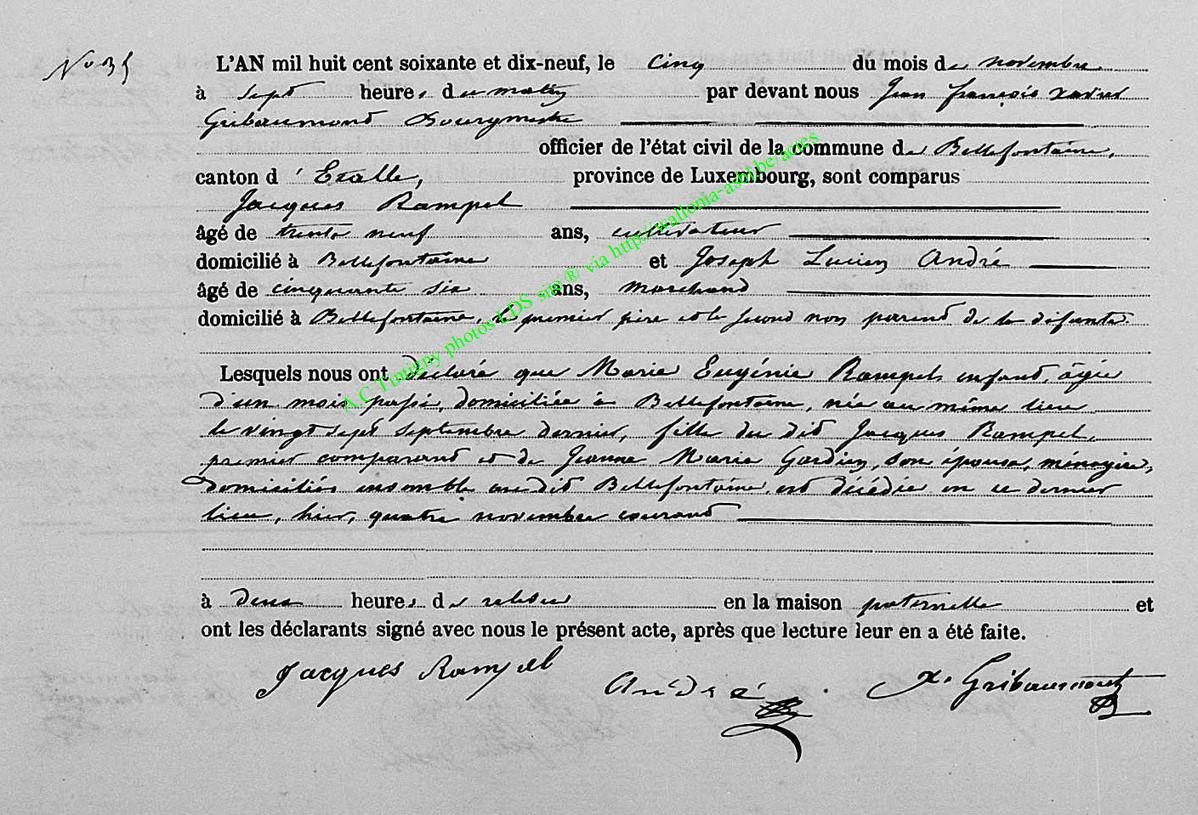 No 35
L'AN mil huit cent soixante et dix-neuf, le cinq du mois de novembre
à sept heures du matin par devant nous Jean françois xavier
Gribaumont Bourgmestre
officier de l'état civil de la commune de Bellefontaine,
canton d'Etalle, province de Luxembourg, sont comparus
Jacques Rampel
âgé de trente neuf ans, cultivateur
domicilié à Bellefontaine et Joseph Lucien André
âgé de cinquante six ans, marchand
domicilié à Bellefontaine, le premier père et le second non parent de la défunte
Lesquels nous ont déclaré que Marie Eugénie Rampel, enfant, âgée
d'un mois passé, domiciliée à Bellefontaine, née au même lieu
le vingt sept septembre dernier, fille du dit Jacques Rampel,
premier comparant et de Jeanne Marie Gardien, son épouse, ménagère,
domiciliés ensemble au dit Bellefontaine, est décédée en ce dernier
lieu, hier, quatre novembre courant
à deux heures de relevée en la maison paternelle et
ont les déclarants signé avec nous le présent acte, après que lecture leur en a été faite.
Jacques Rampel André X. Gribaumont
A.C Tintigny photos LDS site® via http://rallonia-asbl.be/actes